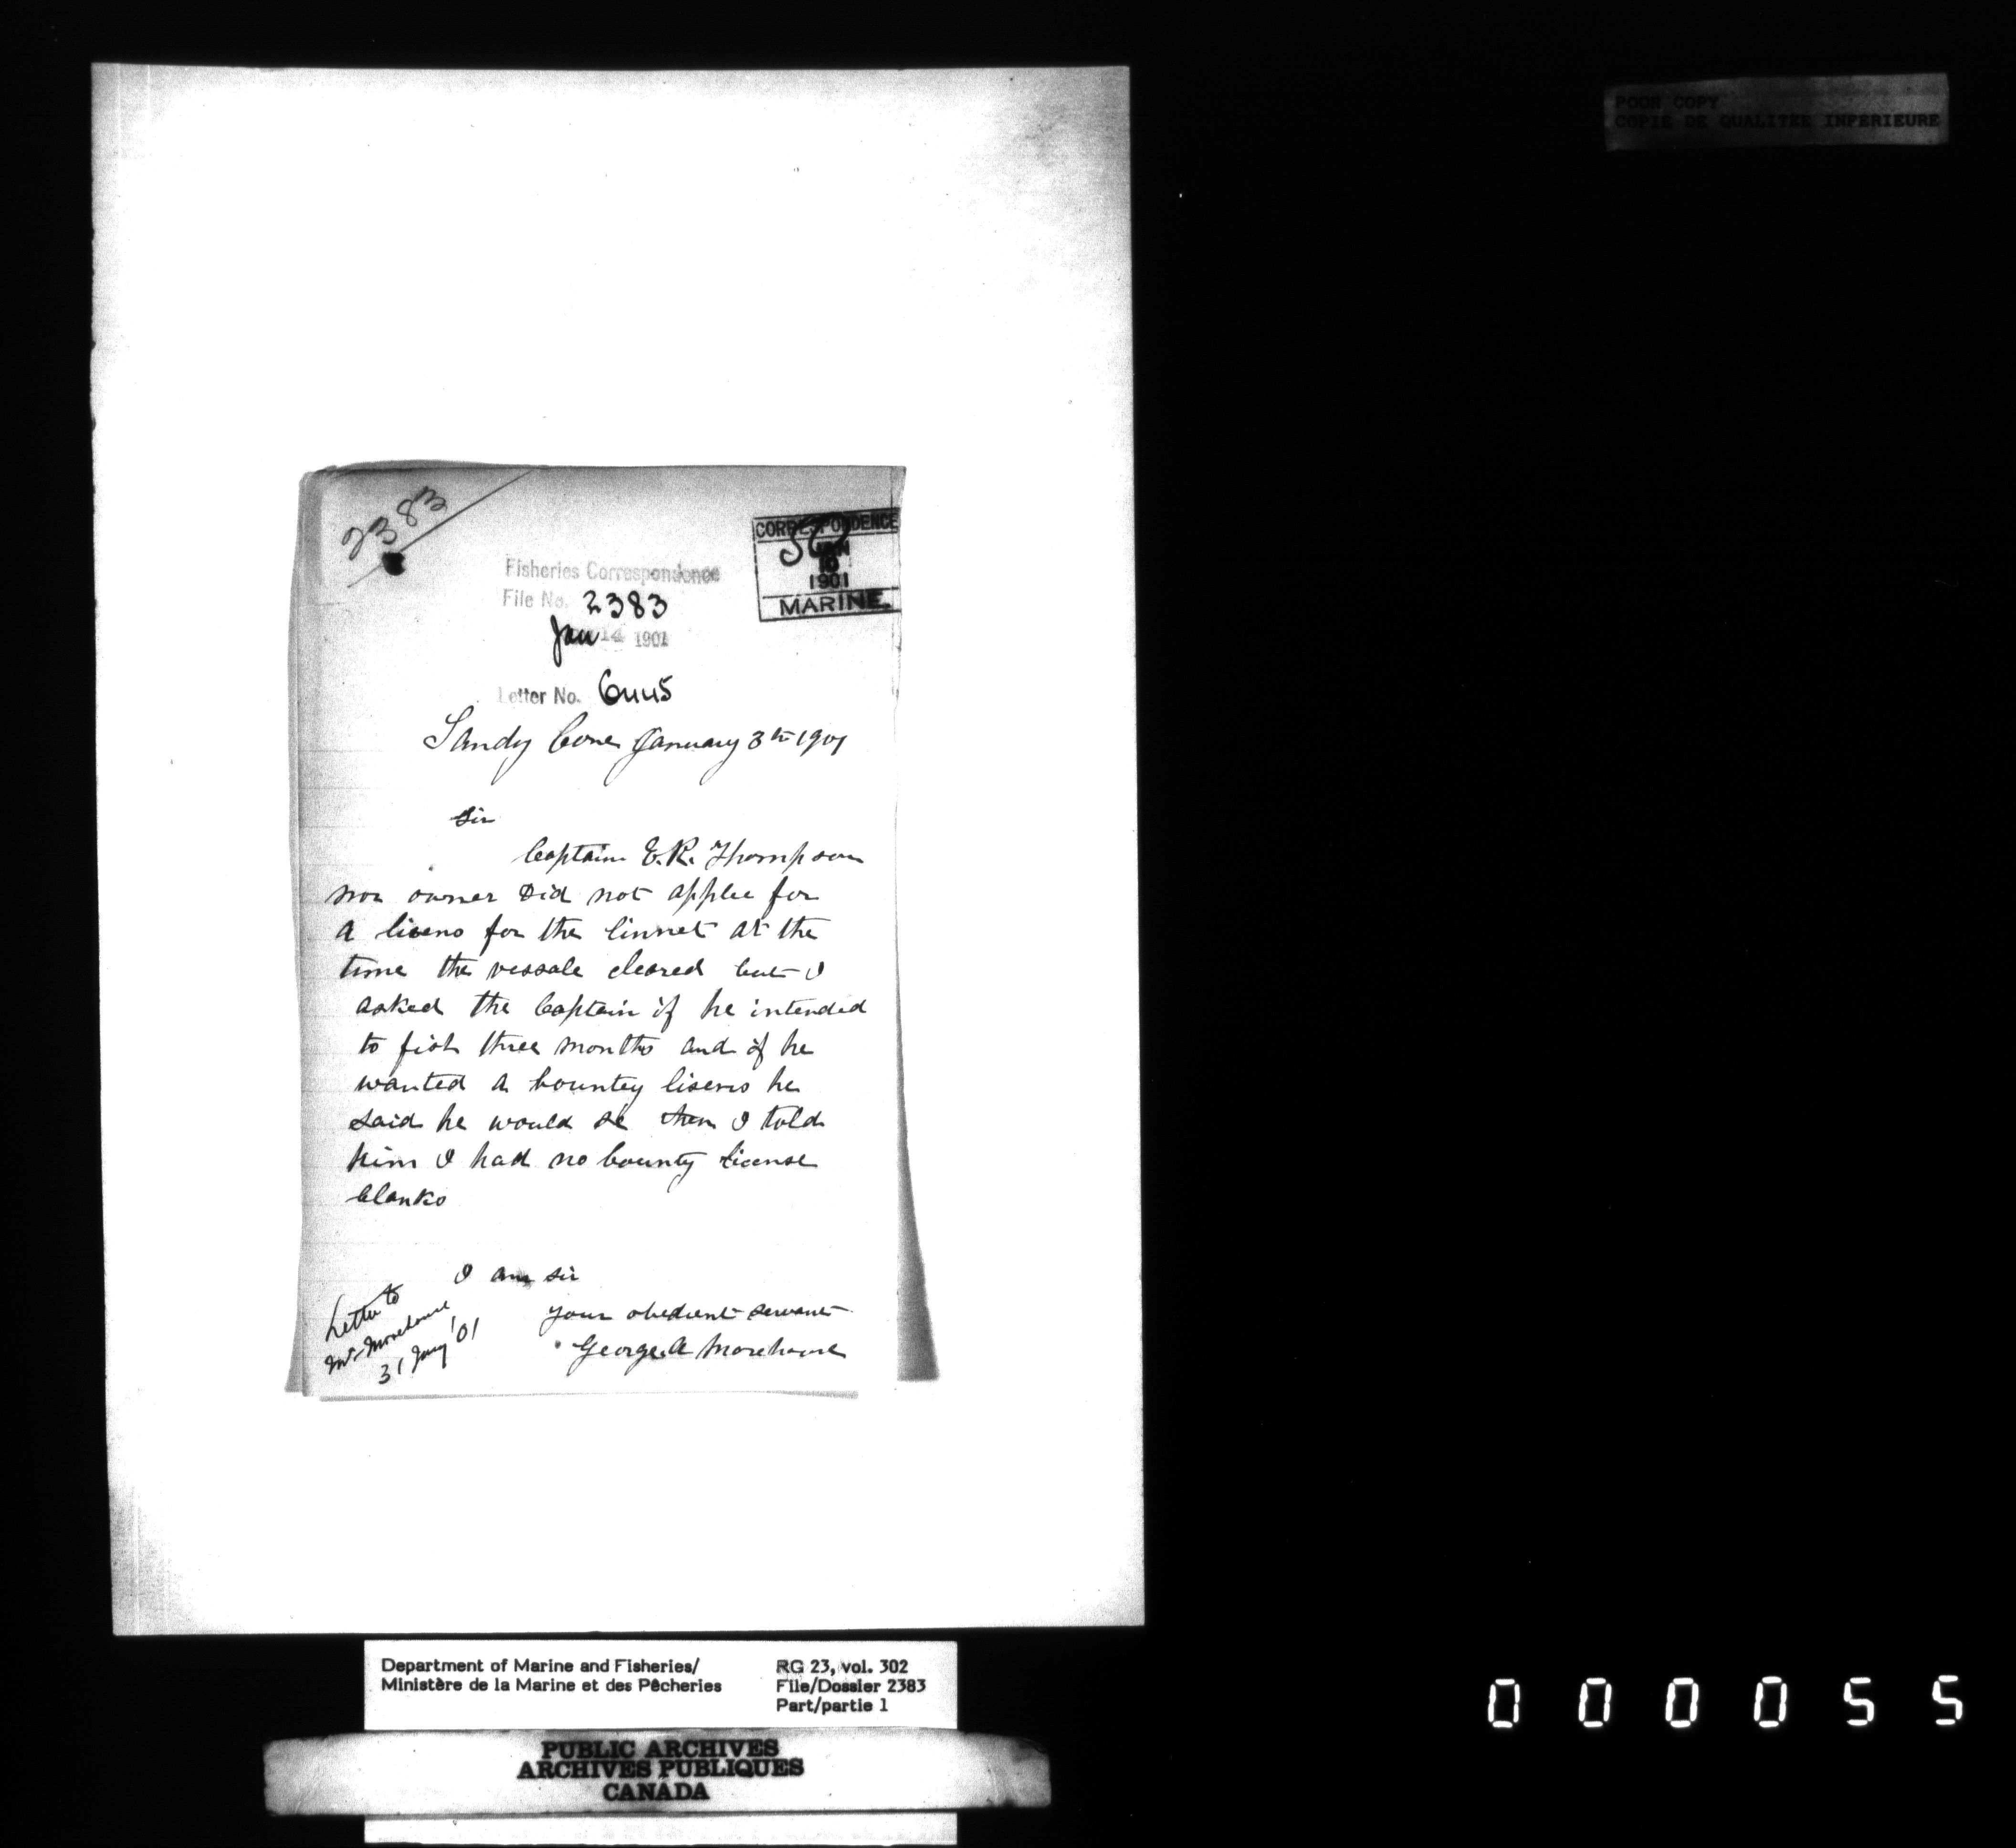 POOR COPY
COPIE DE QUALITEE INFERIEURE
2383
CORRESPONDENCE
JAN
10
1901
MARINE
Fisheries Correspondence
File No. 2383
Jan 14 1901
Letter No. 6445
Sandy Cove January 3th 1901
Sir
Captain E.R. Thompson
nor owner did not applee for
a lisens for the linnet at the
time the vessale cleared but I
asked the Captain if he intended
to fish three months and if he
wanted a bountey lisens he
said he would se then I told
him I had no bounty license
blanks
I am sir
your obedient servant
George A Morehouse
Letter to
Mr Morehouse
31 Jany '01
Department of Marine and Fisheries/
Ministère de la Marine et des Pêcheries
RG 23, vol. 302
File/Dossier 2383
Part/partie 1
PUBLIC ARCHIVES
ARCHIVES PUBLIQUES
CANADA
000055